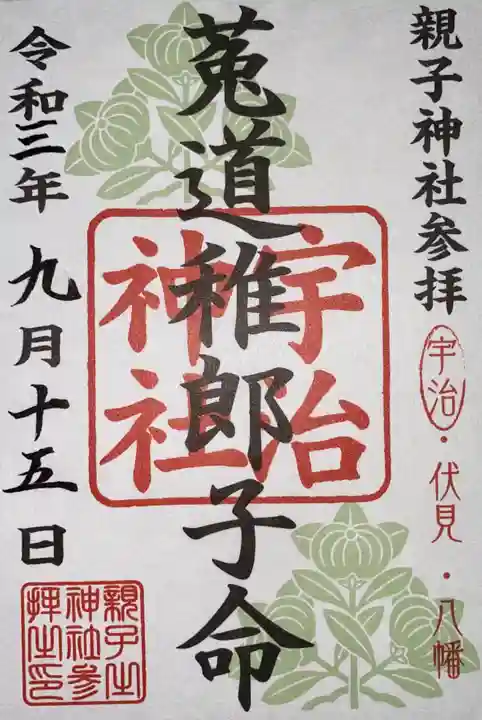 親子神社参拝
宇治・伏見・八幡
菟道稚郎子命
宇治
神社
令和三年 九月十五日
親子之
神社参
拝之印